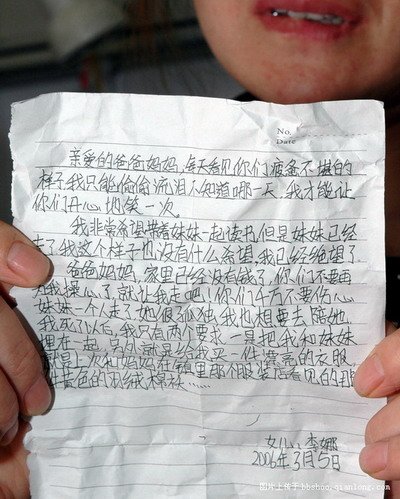 No.
Date
亲爱的爸爸妈妈,每天看见你们疲备不堪的
样子,我只能偷偷流泪,不知道哪一天,我才能让
你们开心地笑一次。
我非常希望带着妹妹一起读书,但是妹妹已经
走了,我这个样子也没有什么希望,我已经绝望了
爸爸妈妈,家里已经没有钱了,你们不要再
为我操心了,就让我走吧!你们千万不要伤心
妹妹一个人走了她很孤独,我也想要去陪她
我死了以后,我只有两个要求,一是把我和妹妹
埋在一起,另外就是给我买一件漂亮的衣服
就是上次和妈妈在镇里那个服装店看见的那
件 色的 棉袄……
女儿:李娜
2006年3月5日
图片上传于bbshoo.qianlong.com